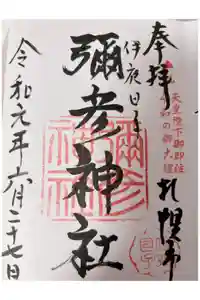 奉拝
札幌市
天皇陛下御即位
伊夜日子
彌彦神社
令和元年六月二十七日